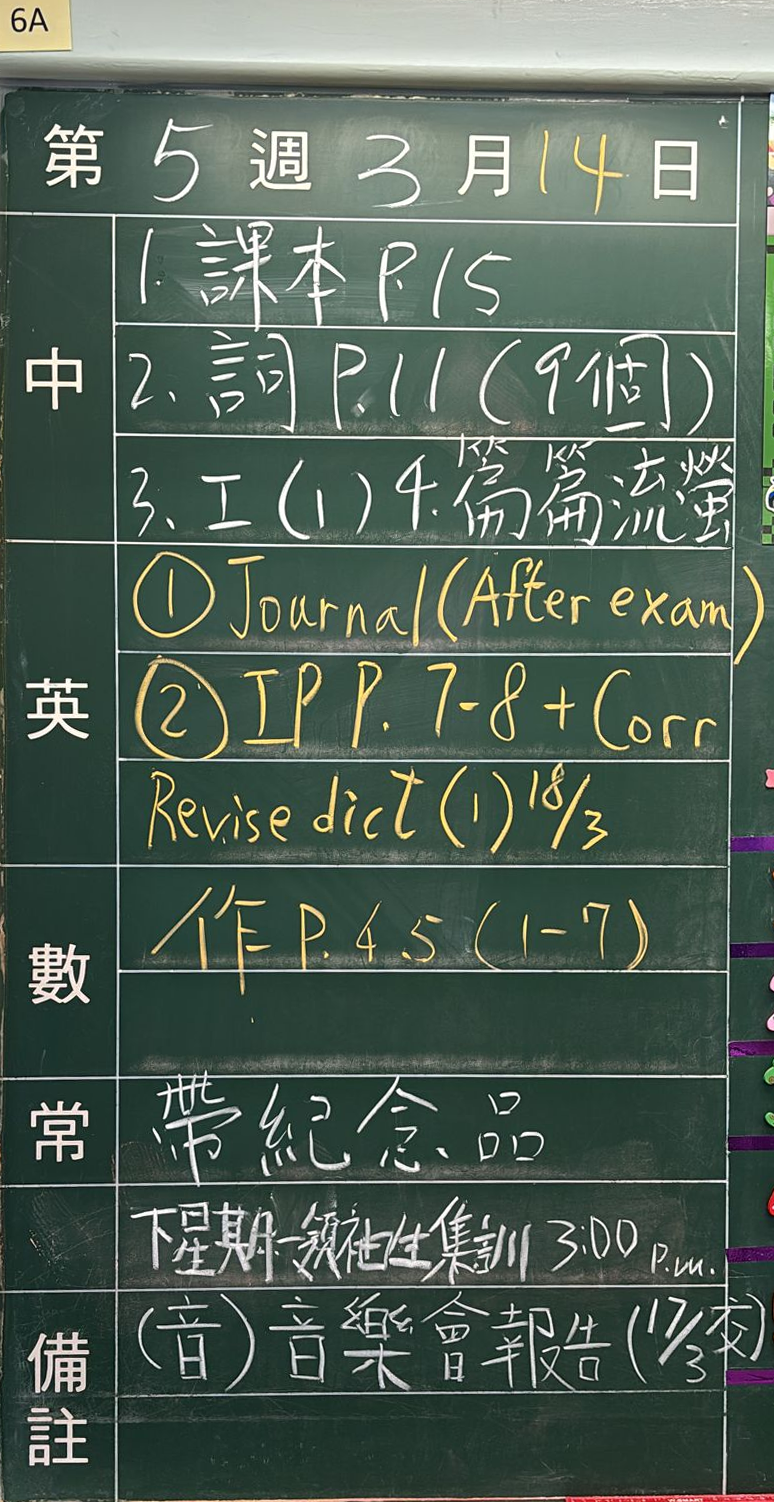 6A
第 5 週 3 月 14 日
中
1. 課本 P.15
2. 詞 P.11 (9個)
3. 工 (1) 4. 篇篇流螢
英
① Journal (After exam)
② IP P. 7-8 + Corr
Revise dict (1) 18/3
數
作 P. 4.5 (1-7)
常
帶紀念品
下星期一領袖生集訓 3:00 p.m.
備註
(音) 音樂會報告 (17/3交)